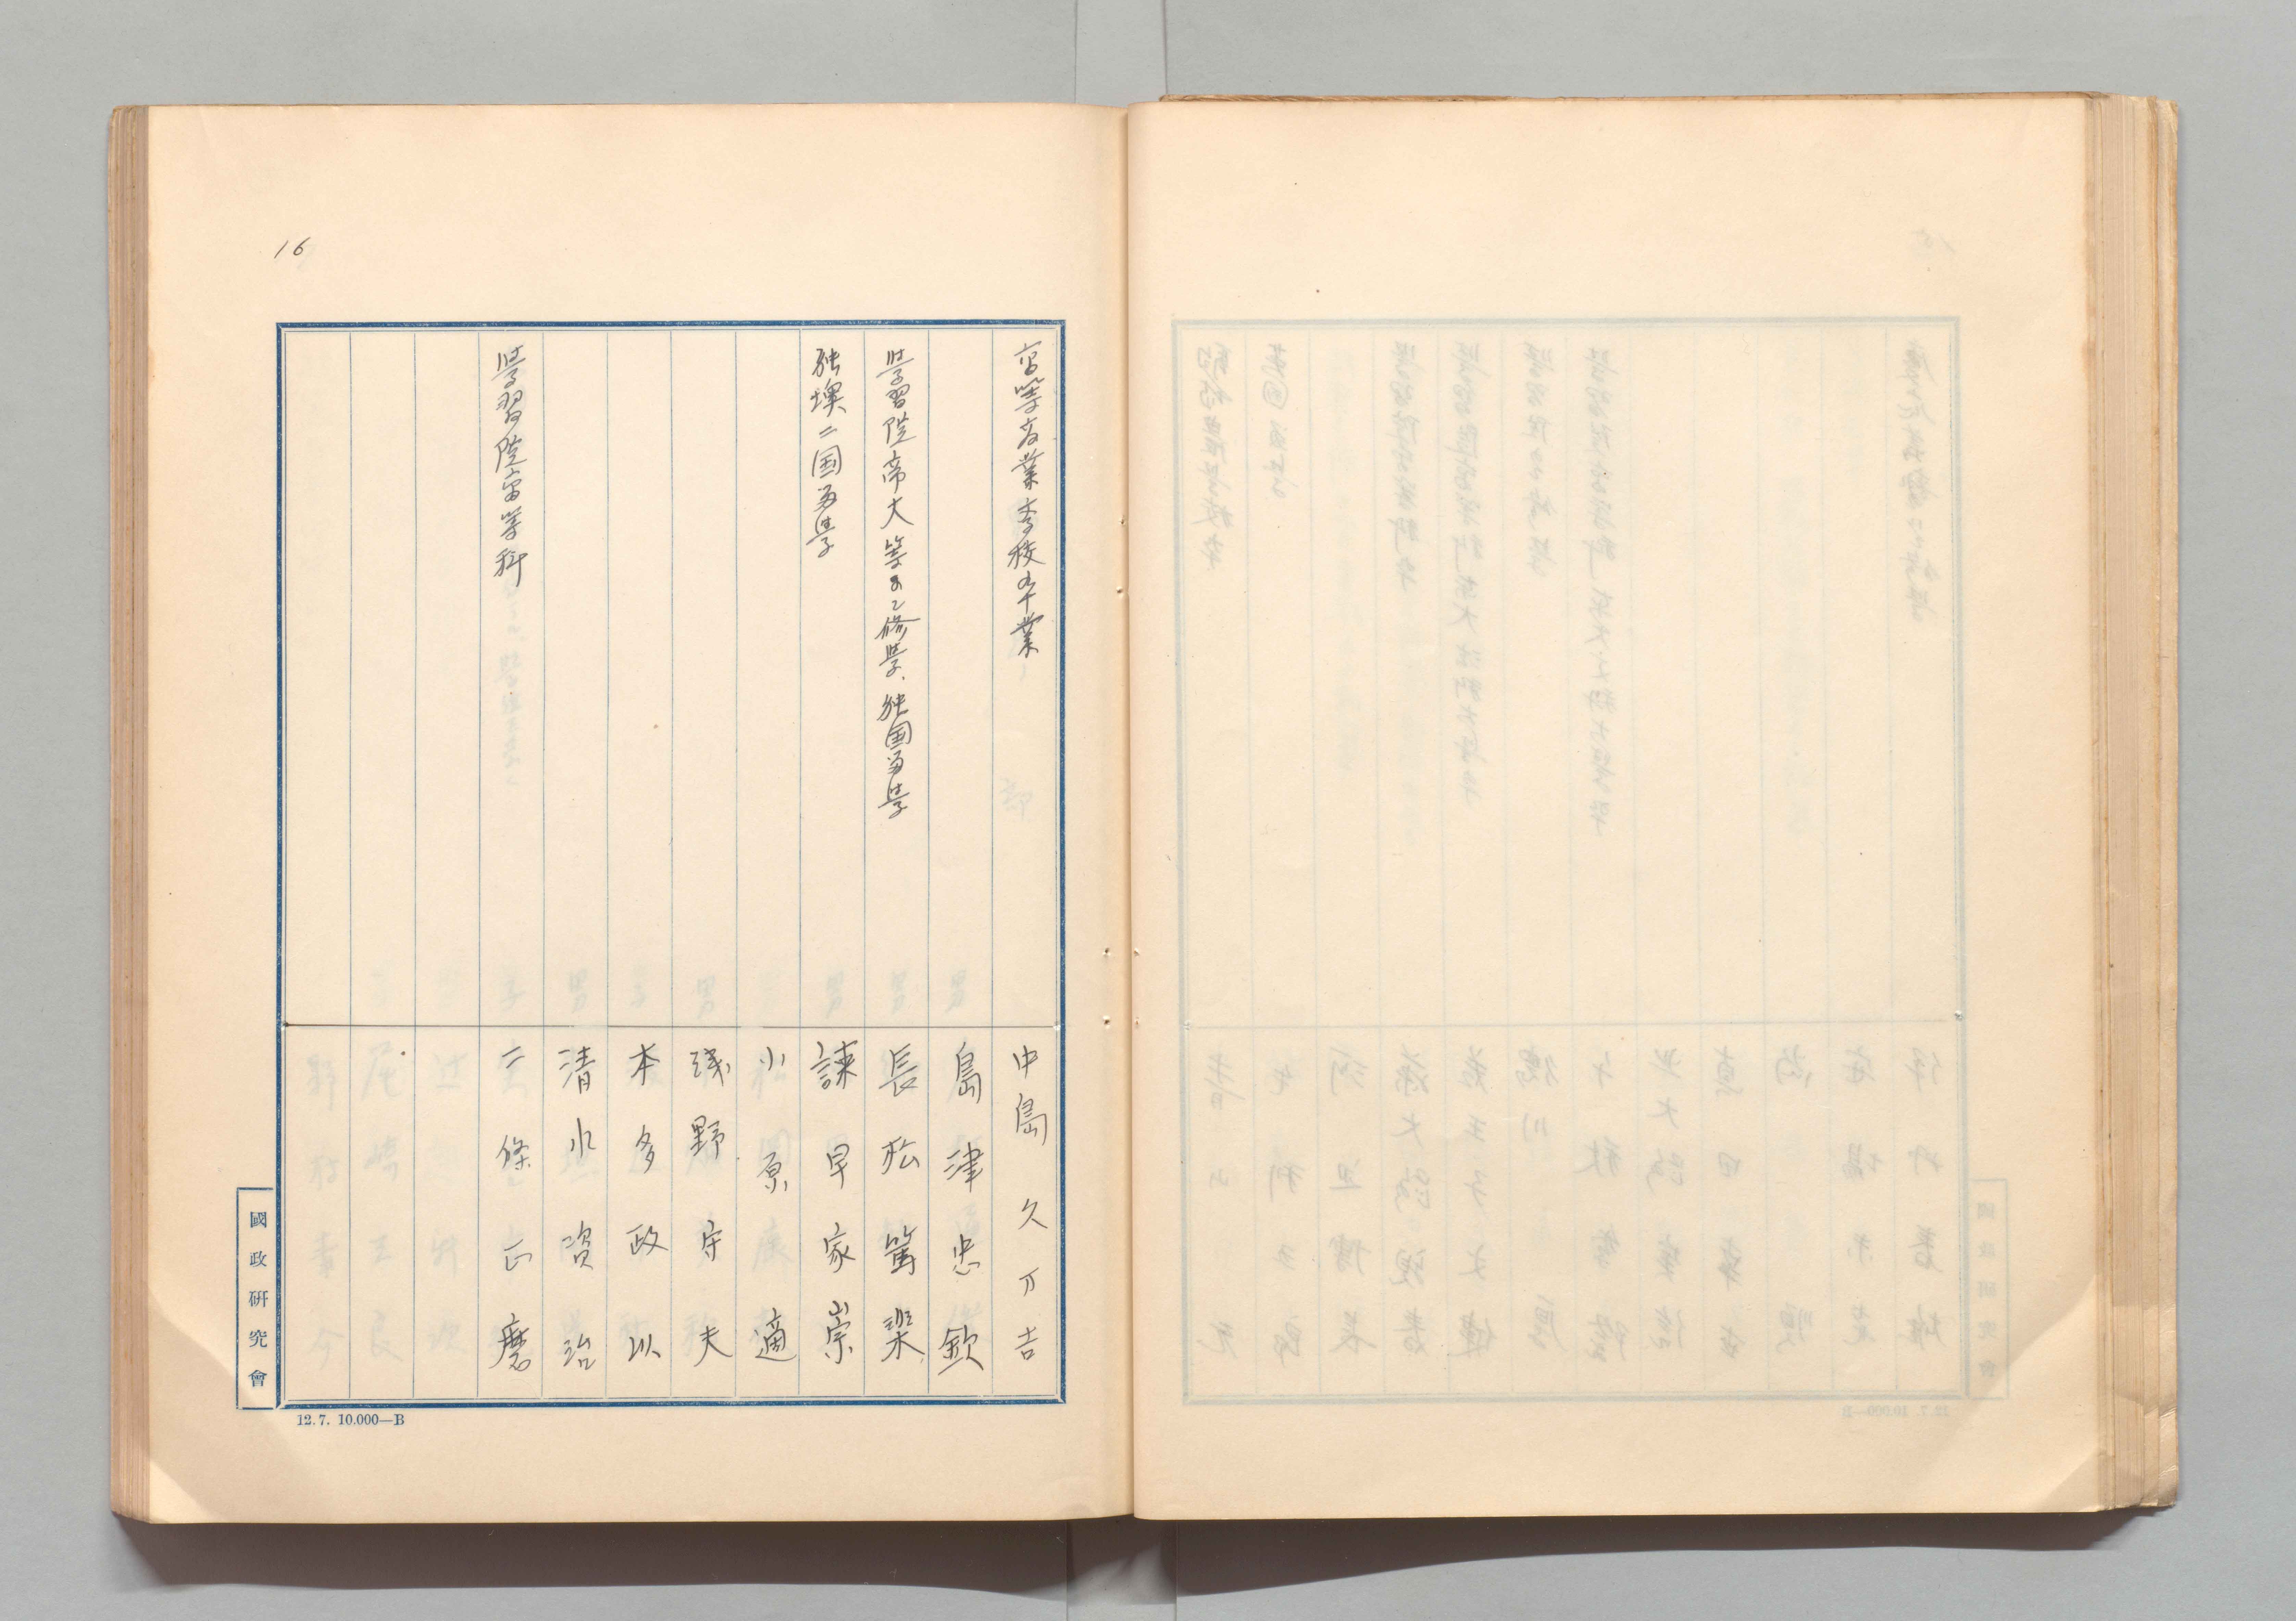 16
高等商業学校卒業
中島久万吉
島津忠欽
學習院帝大等ニ修學、独国留學
長松篤棐
独墺二国留學
諫早家崇
小原適
浅野守夫
本多政以
清水資治
學習院高等科
二條正麿
國政研究會
12.7. 10.000—B